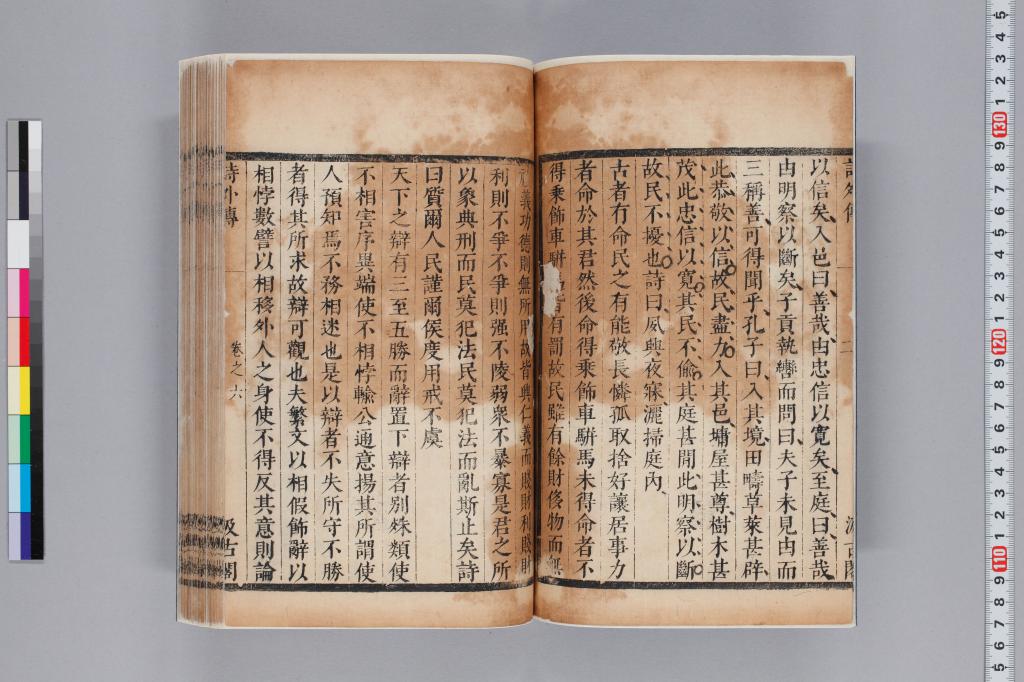 以信矣入邑曰善哉由忠信以寬矣至庭曰善哉
由明察以斷矣子貢執轡而問曰夫子未見由而
三稱善可得聞乎孔子曰入其境田疇草萊甚辟
此恭敬以信故民盡力入其邑墉屋甚尊樹木甚
茂此忠信以寬其民不偷其庭甚閒此明察以斷
故民不擾也詩曰夙興夜寐灑掃庭內
古者有命民之有能敬長憐孤取捨好讓居事力
者命於其君然後命得乘飾車駢馬未得命者不
得乘飾車駢 皆有罰故民雖有餘財侈物而無
禮義功德則無所用故皆興仁義而賤財利賤財
利則不爭不爭則强不陵弱衆不暴寡是君之所
以象典刑而民莫犯法民莫犯法而亂斯止矣詩
曰質爾人民謹爾侯度用戒不虞
天下之辯有三至五勝而辭置下辯者別殊類使
不相害序異端使不相悖輸公通意揚其所謂使
人預知焉不務相迷也是以辯者不失所守不勝
者得其所求故辯可觀也夫繁文以相假飾辭以
相悖數譬以相移外人之身使不得反其意則論
詩外傳 卷之六 汲古閣